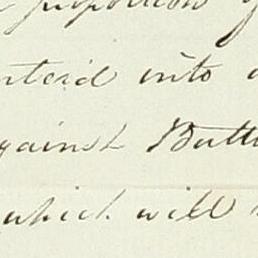 proportion
enter'd into
against Butt
which will